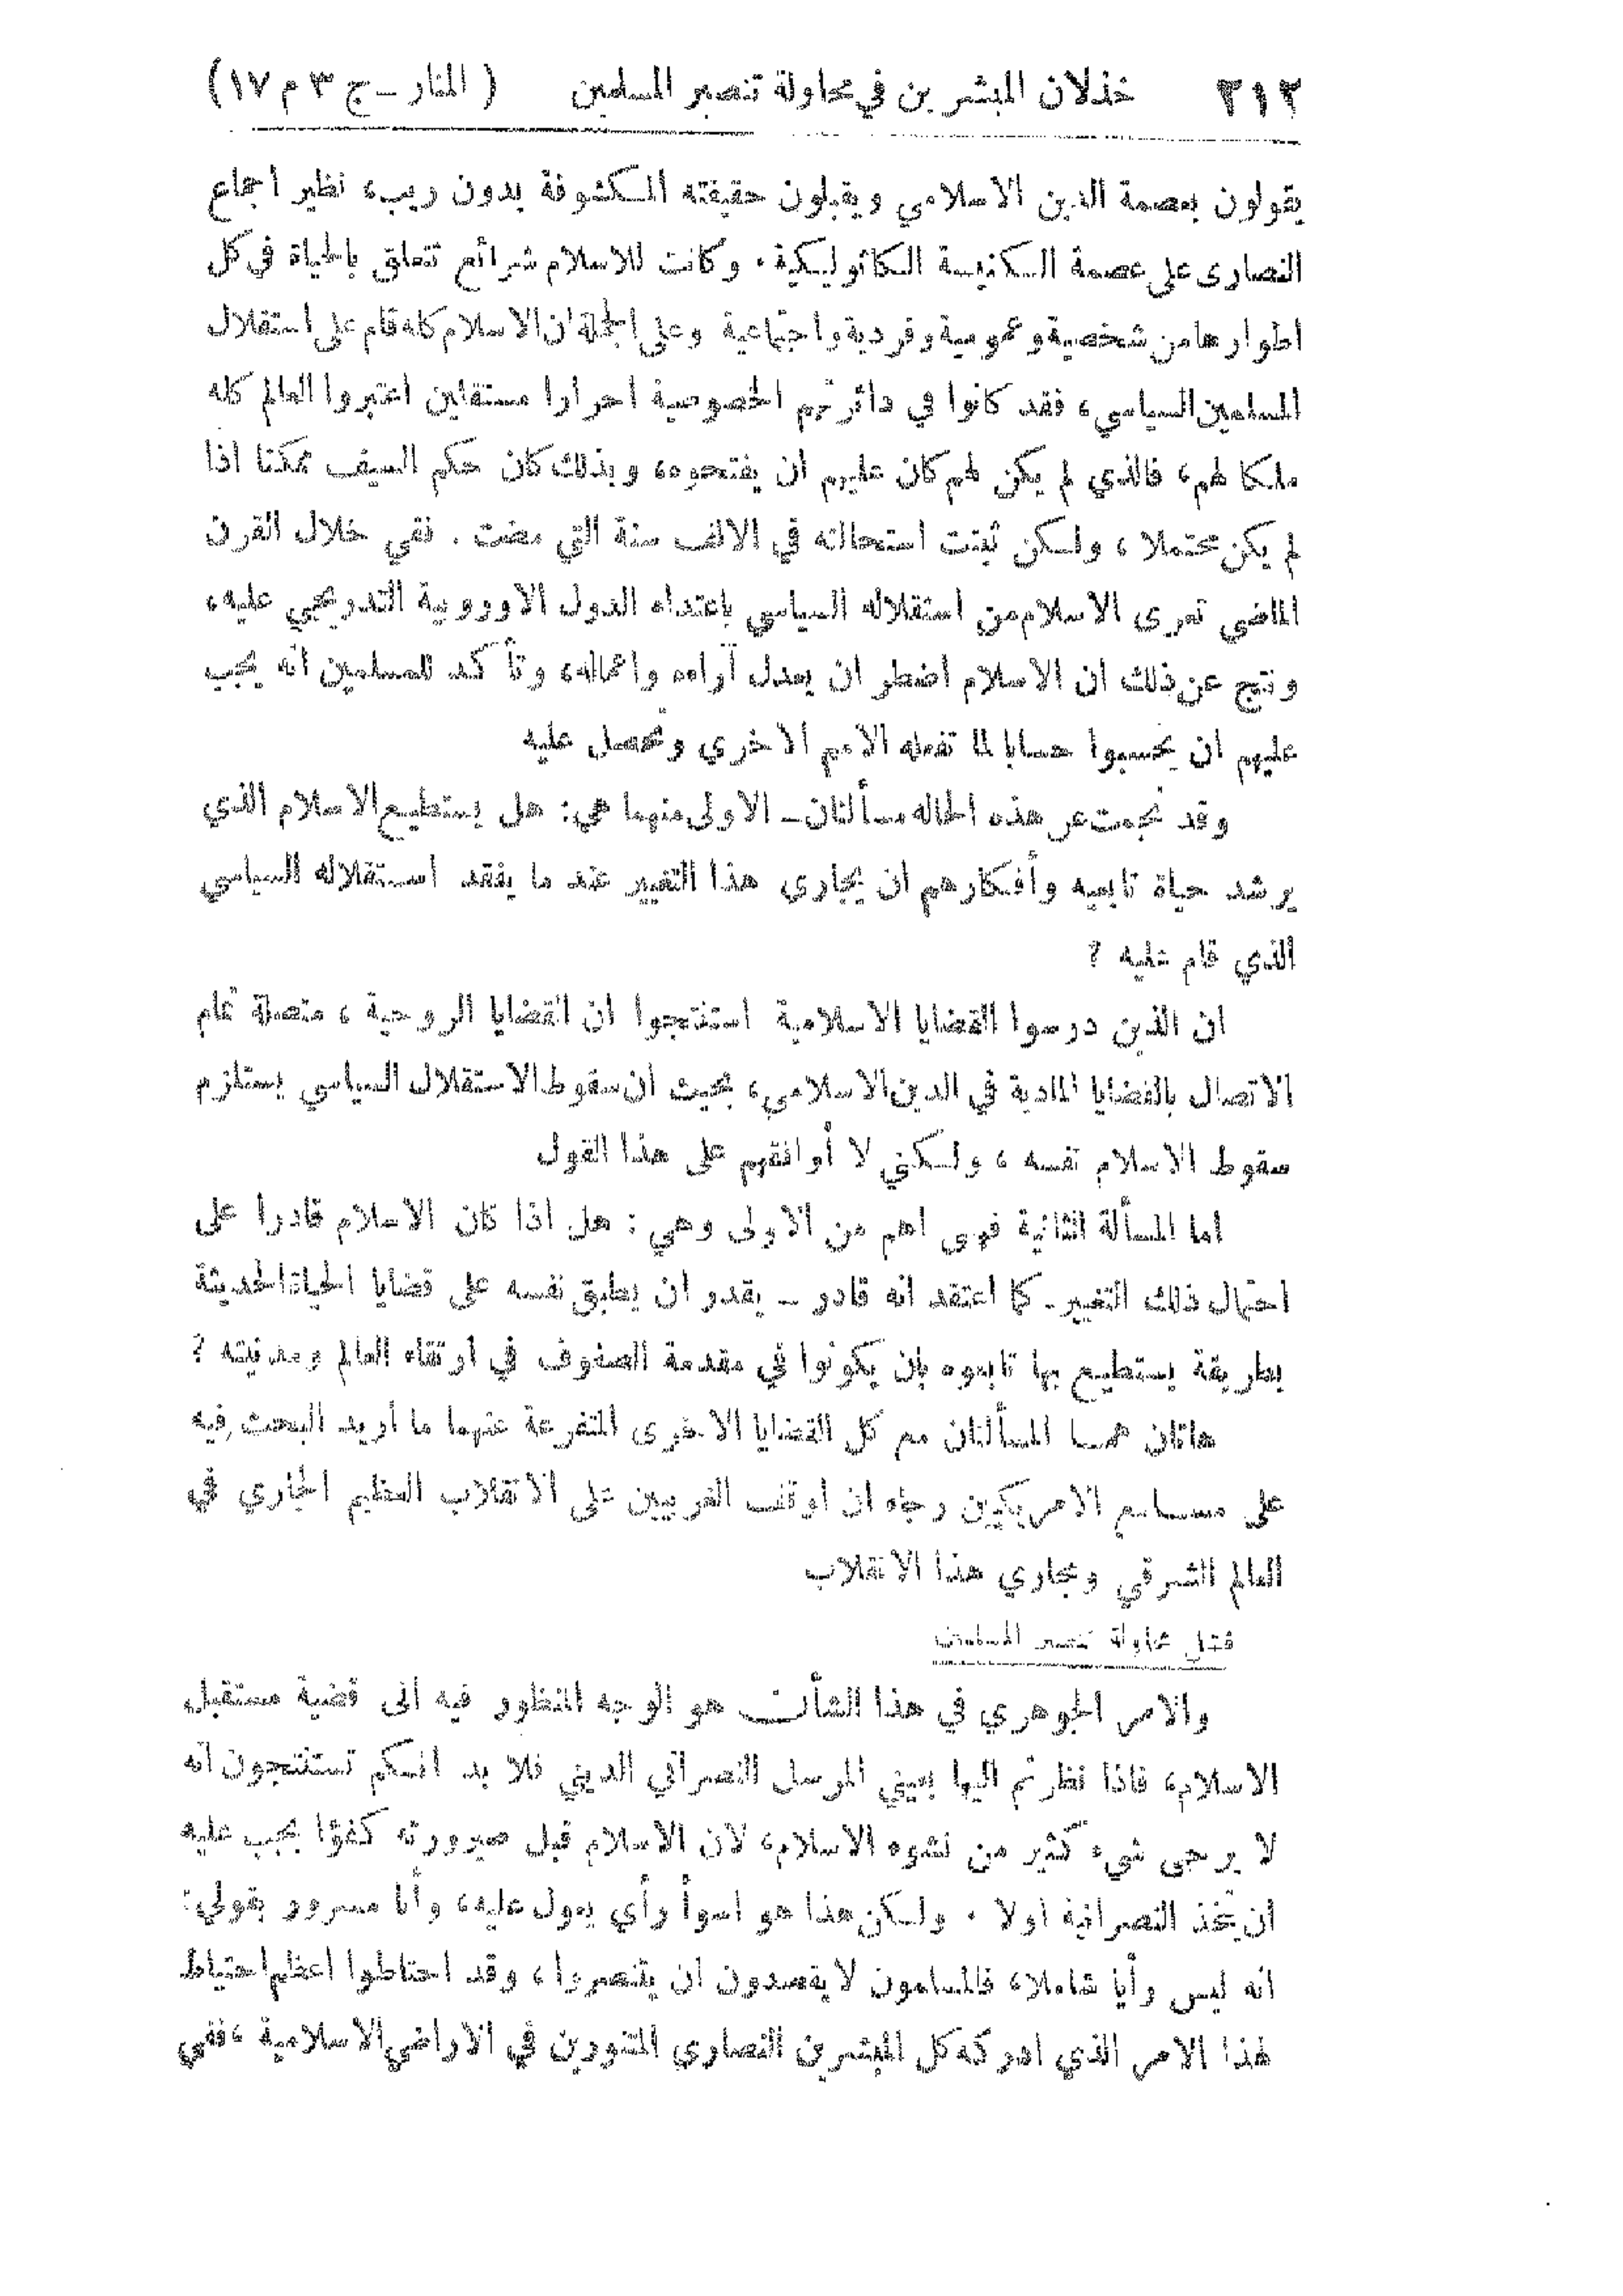 ٢١٢ خذلان المبشرين في محاولة تنصير المسلمين ( المنار ــ ج ٣ م ١٧)
يقولون بعصمة الدين الاسلامي ويقبلون حقيقته المكشوفة بدون ريب، نظير اجماع
النصارى على عصمة الكنيسة الكاثوليكية. وكانت للاسلام شرائع تتعلق بالحياة في كل
اطوارها من شخصية وعمومية وفردية واجتماعية وعلى الجملة ان الاسلام كله قام على استقلال
المسلمين السياسي، فقد كانوا في دائرتهم الخصوصية احرارا مستقلين اعتبروا العالم كله
ملكا لهم، فالذي لم يكن لهم كان عليهم ان يفتحوه، وبذلك كان حكم السيف ممكنا اذا
لم يكن محتملا، ولكن ثبتت استحالته في الالف سنة التي مضت. ففي خلال القرن
الماضي تعرى الاسلام من استقلاله السياسي باعتداء الدول الاوروبية التدريجي عليه،
ونتج عن ذلك ان الاسلام اضطر ان يعدل آراءه واعماله، وتأكد للمسلمين انه يجب
عليهم ان يحسبوا حسابا لما تفعله الامم الاخرى وتحصل عليه
وقد نجمت عن هذه الحاله مسألتان ــ الاولى منهما هي: هل يستطيع الاسلام الذي
يرشد حياة تابعيه وأفكارهم ان يجارى هذا التغيير عند ما يفقد استقلاله السياسي
الذي قام عليه ؟
ان الذين درسوا القضايا الاسلامية استنتجوا ان القضايا الروحية، متصلة تمام
الاتصال بالقضايا المادية في الدين الاسلامي، بحيث ان سقوط الاستقلال السياسي يستلزم
سقوط الاسلام نفسه، ولكني لا أوافقهم على هذا القول
اما المسألة الثانية فهي اهم من الاولى وهي : هل اذا كان الاسلام قادرا على
احتمال ذلك التغيير ــ كما اعتقد انه قادر ــ يقدر ان يطبق نفسه على قضايا الحياة الحديثة
بطريقة يستطيع بها تابعوه بان يكونوا في مقدمة الصفوف في ارتقاء العالم ومدنيته ؟
هاتان هما المسألتان مع كل القضايا الاخرى المتفرعة عنهما ما أريد البحث فيه
على مسامع الامريكيين رجاء ان اوقف الغربيين على الانقلاب العظيم الجاري في
العالم الشرقي ومجاري هذا الانقلاب
فشل محاولة تنصير المسلمين
والامر الجوهري في هذا الشأن هو الوجه المنظور فيه الى قضية مستقبل
الاسلام، فاذا نظرتم اليها بعيني المرسل النصراني الديني فلا بد انكم تستنتجون انه
لا يرجى شيء كثير من نشوء الاسلام، لان الاسلام قبل صيرورته كفؤا يجب عليه
ان يتخذ النصرانية اولا . ولكن هذا هو اسوأ رأي يعول عليه، وأنا مسرور بقولي:
انه ليس رأيا شاملا، فالمسلمون لا يقصدون ان يتنصروا، وقد احتاطوا اعظم احتياط
لهذا الامر الذي ادركه كل المبشرين النصارى المتنورين في الاراضي الاسلامية، ففي